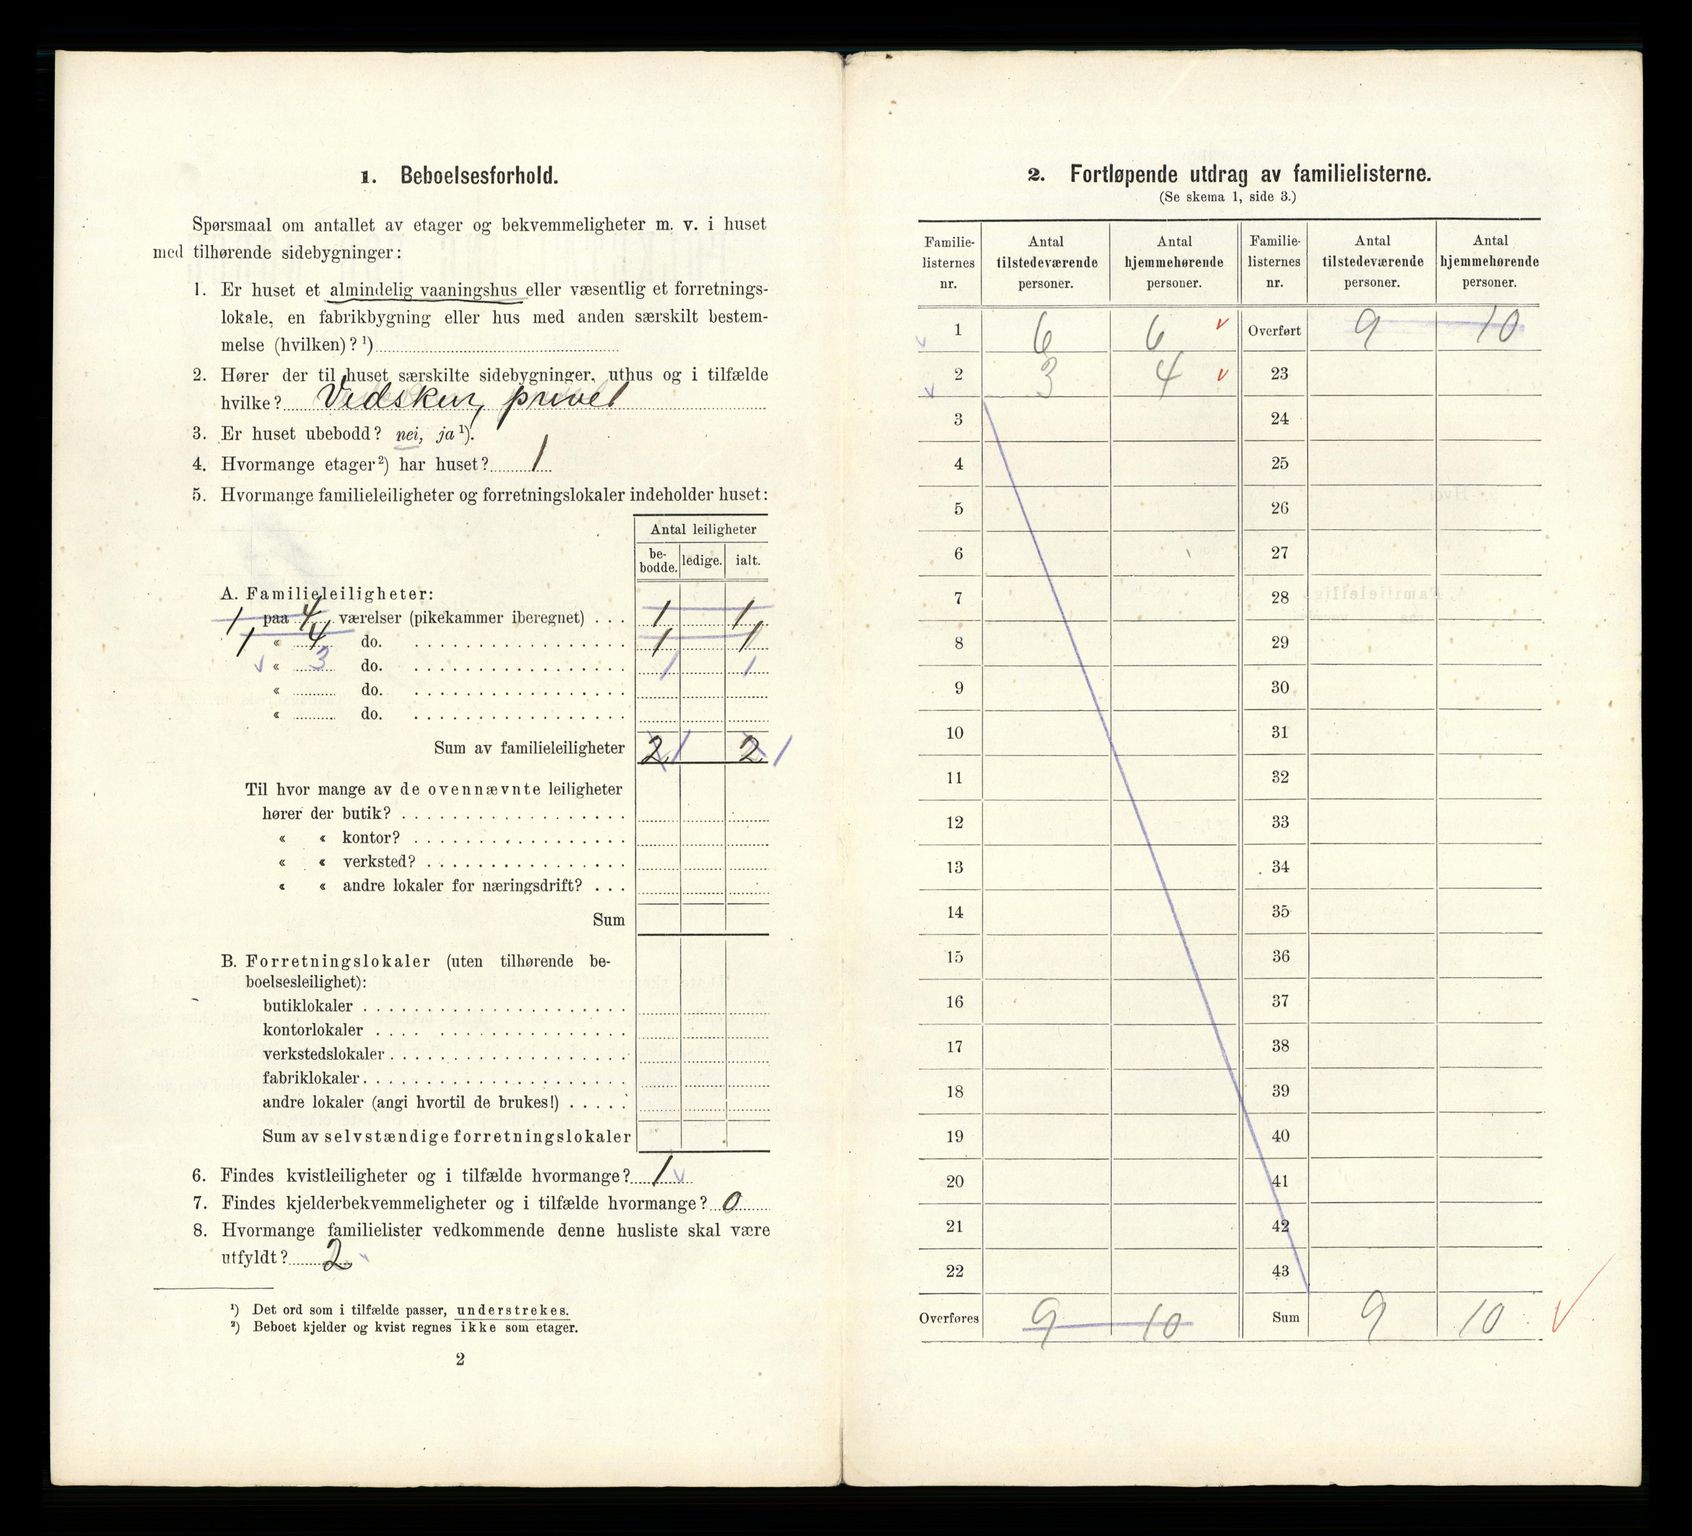 1. Beboelsesforhold.
Spørsmaal om antallet av etager og bekvemmeligheter m. v. i huset
med tilhørende sidebygninger:
1. Er huset et almindelig vaaningshus eller væsentlig et forretnings-
lokale, en fabrikbygning eller hus med anden særskilt bestem-
melse (hvilken)? ¹)
2. Hører der til huset særskilte sidebygninger, uthus og i tilfælde
hvilke? Vedskur, privet
3. Er huset ubebodd? nei, ja ¹).
4. Hvormange etager ²) har huset? 1
5. Hvormange familieleiligheter og forretningslokaler indeholder huset:
Antal leiligheter
be-bodde. ledige. ialt.
A. Familieleiligheter:
1 paa 4 værelser (pikekammer iberegnet) . . . 1 1
1 « 4 do. 1 1
v « 3 do. 1 1
« do.
« do.
Sum av familieleiligheter 2 1 2 1
Til hvor mange av de ovennævnte leiligheter
hører der butik?
« « kontor?
« « verksted?
« « andre lokaler for næringsdrift? . . .
Sum
B. Forretningslokaler (uten tilhørende be-
boelsesleilighet):
butiklokaler
kontorlokaler
verkstedslokaler
fabriklokaler
andre lokaler (angi hvortil de brukes!)
Sum av selvstændige forretningslokaler
6. Findes kvistleiligheter og i tilfælde hvormange? 1 v
7. Findes kjelderbekvemmeligheter og i tilfælde hvormange? 0
8. Hvormange familielister vedkommende denne husliste skal være
utfyldt? 2 v
¹) Det ord som i tilfælde passer, understrekes.
²) Beboet kjelder og kvist regnes ikke som etager.
2
2. Fortløpende utdrag av familielisterne.
(Se skema 1, side 3.)
Familie-listernes nr. Antal tilstedeværende personer. Antal hjemmehørende personer. Familie-listernes nr. Antal tilstedeværende personer. Antal hjemmehørende personer.
v 1 6 6 v Overført 9 10
v 2 3 4 v 23
3 24
4 25
5 26
6 27
7 28
8 29
9 30
10 31
11 32
12 33
13 34
14 35
15 36
16 37
17 38
18 39
19 40
20 41
21 42
22 43
Overføres 9 10 Sum 9 10 v